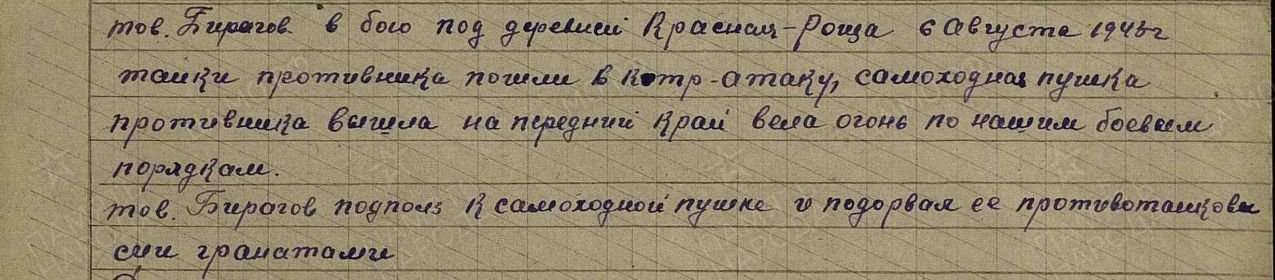 тов. Бирагов в бою под деревней Красная-Роща 6 Августа 1943г
танки противника пошли в котр-атаку, самоходная пушка
противника вышла на передний край вела огонь по нашим боевым
порядкам.
тов. Бирагов подполз к самоходной пушке и подорвал ее противотанковы
ми гранатами